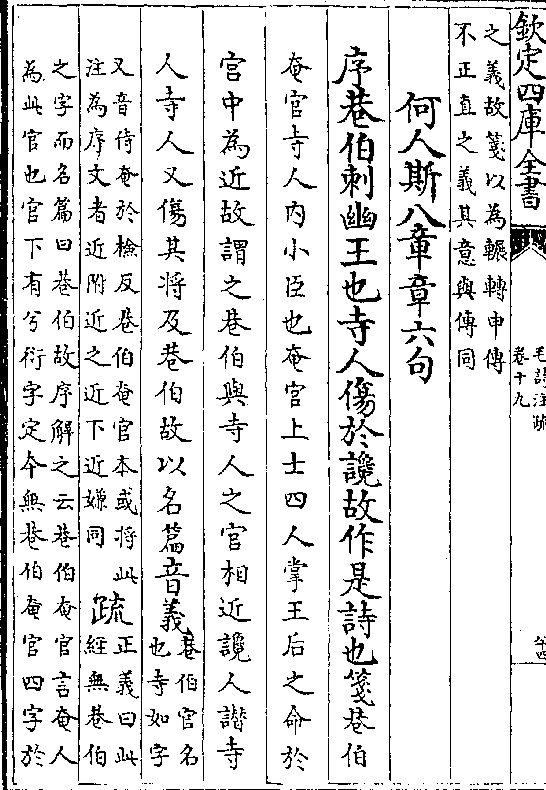 欽定四庫全書
毛詩注疏
卷十九
之義故箋以為輾轉申傳
不正直之義其意與傳同
何人斯八章章六句
序巷伯刺幽王也寺人傷於讒故作是詩也箋巷伯
奄官寺人内小臣也奄官上士四人掌王后之命於
宫中為近故謂之巷伯與寺人之官相近讒人譖寺
人寺人又傷其将及巷伯故以名篇音義巷伯官名
也寺如字
又音侍奄於檢反巷伯奄官本或将此
注為序文者近附近之近下近嫌同
疏正義曰此
經無巷伯
之字而名篇曰巷伯故序解之云巷伯奄官言奄人
為此官也官下有兮衍字定本無巷伯奄官四字於